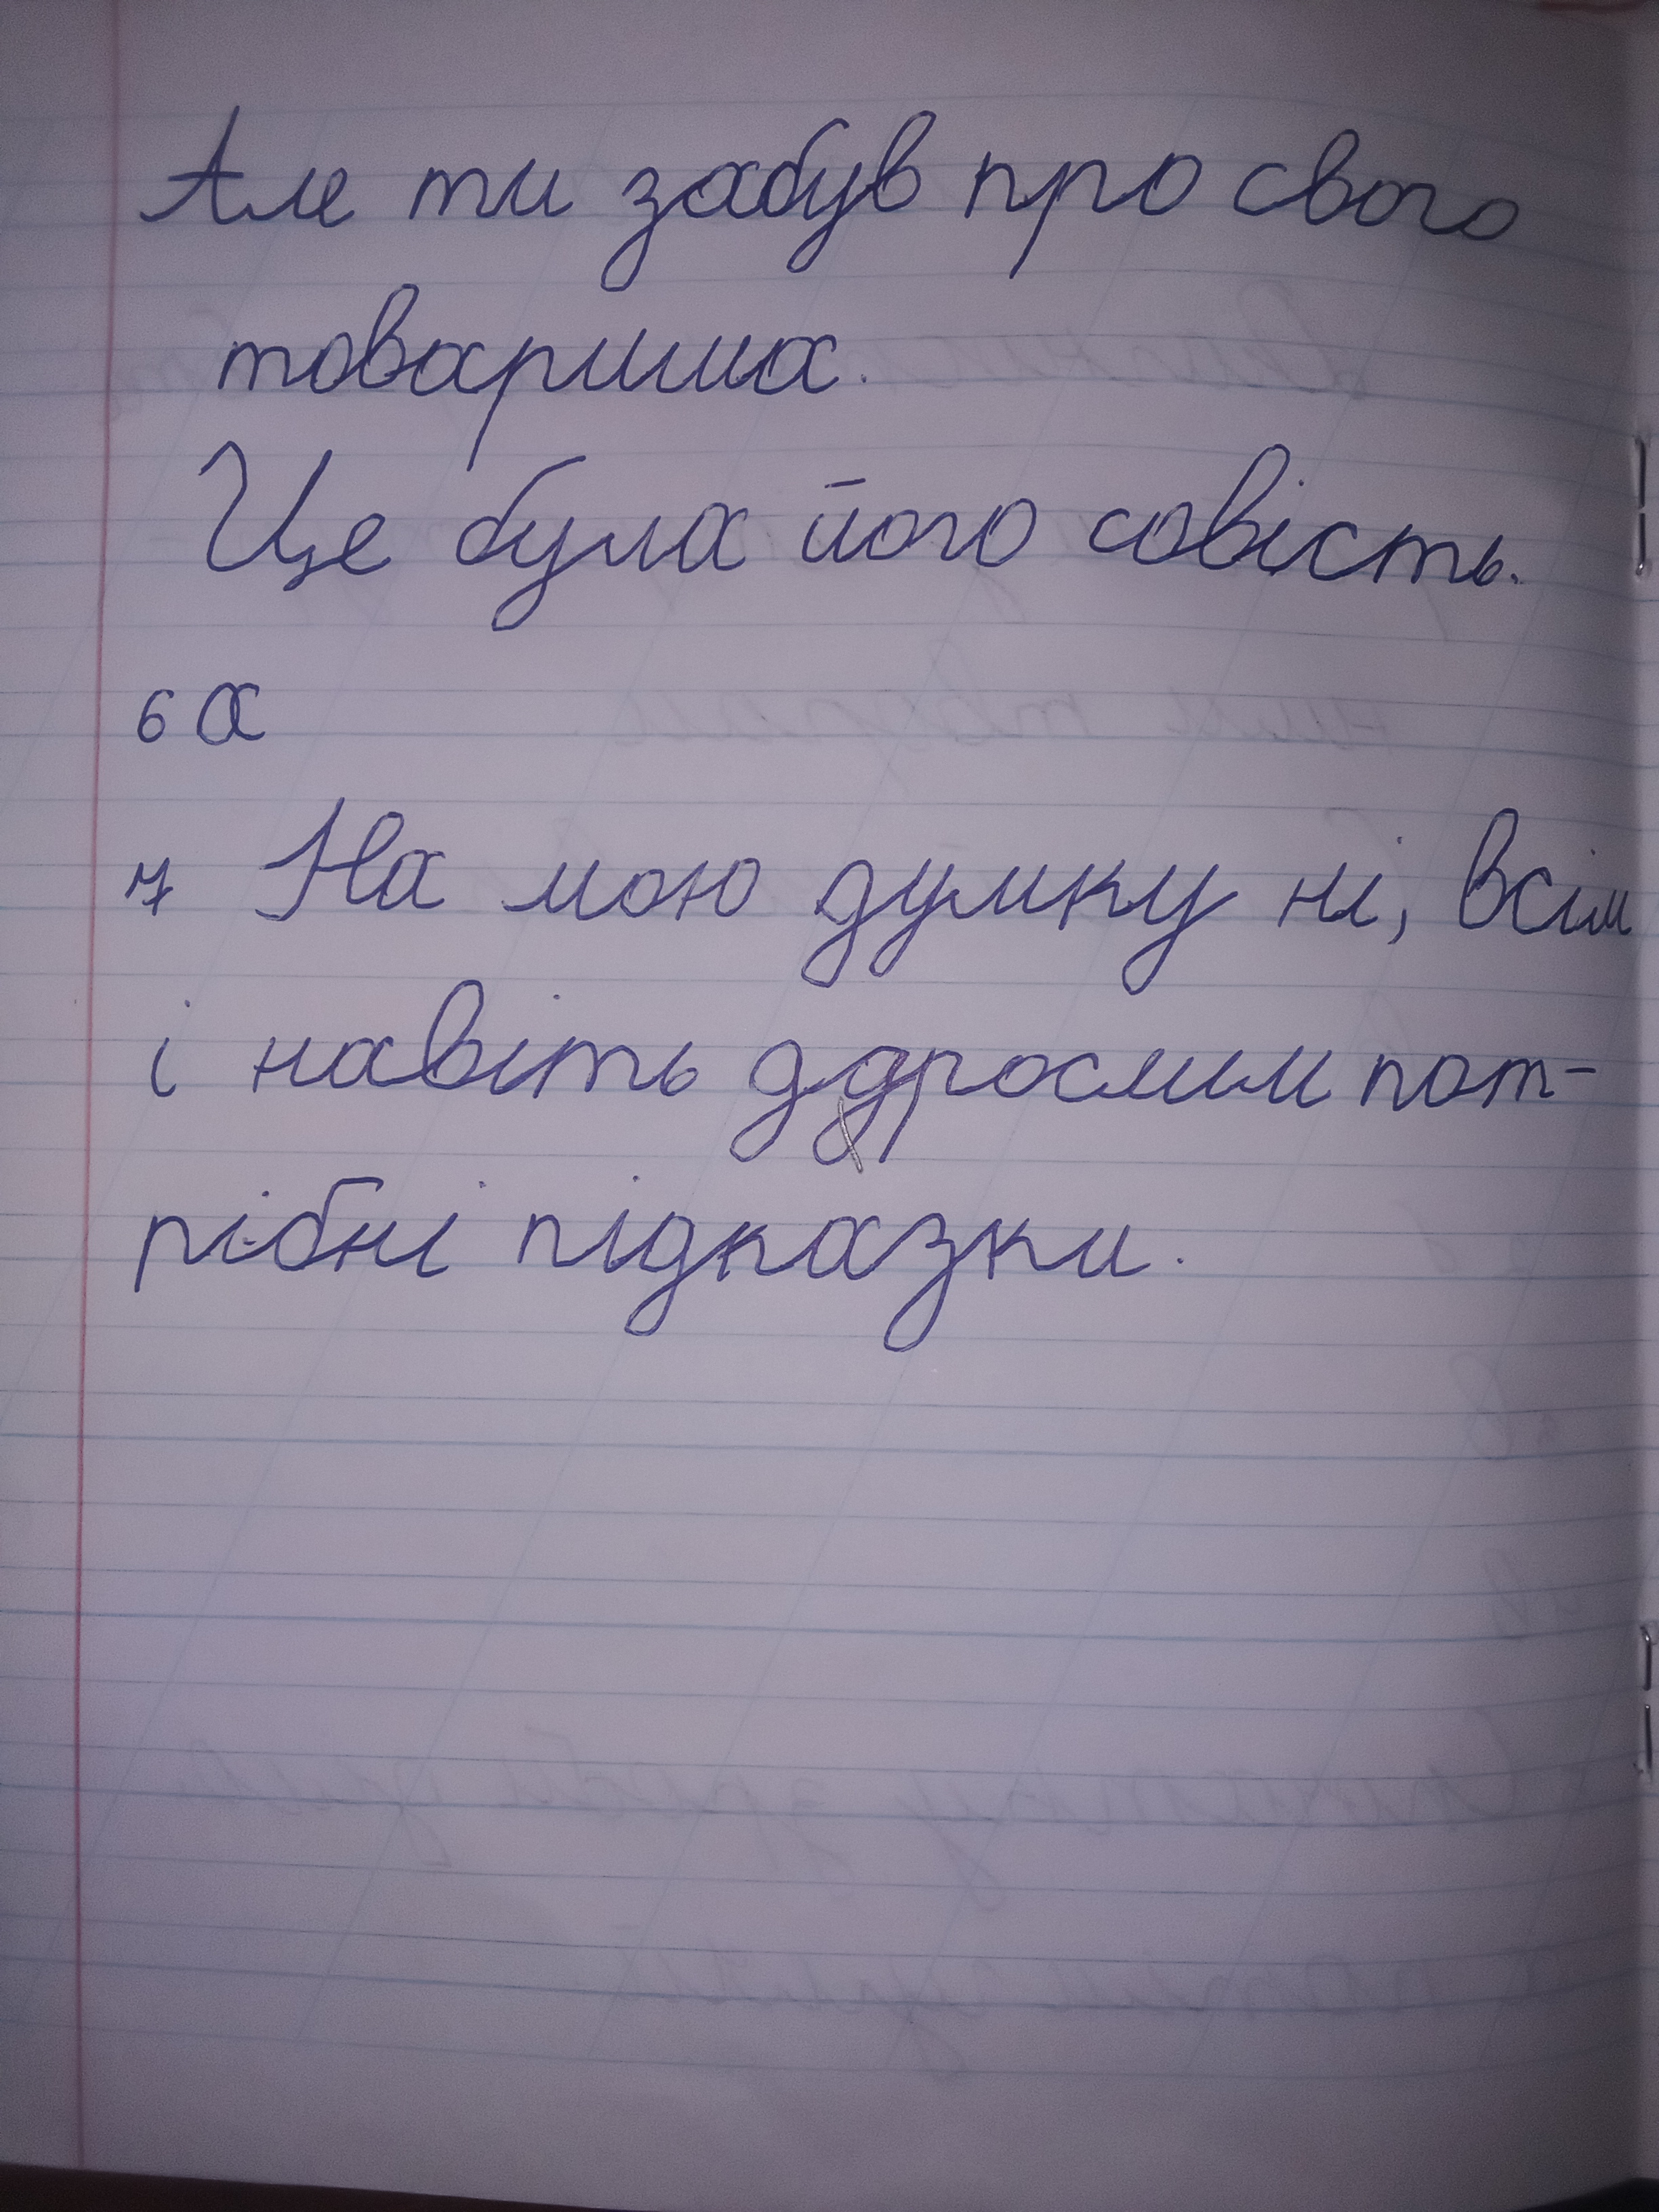 Але ти забув про свого
товариша.
Це була його совість.
6 а
7 На мою думку ні, всім
і навіть ддрослим пот-
рібні підказки.